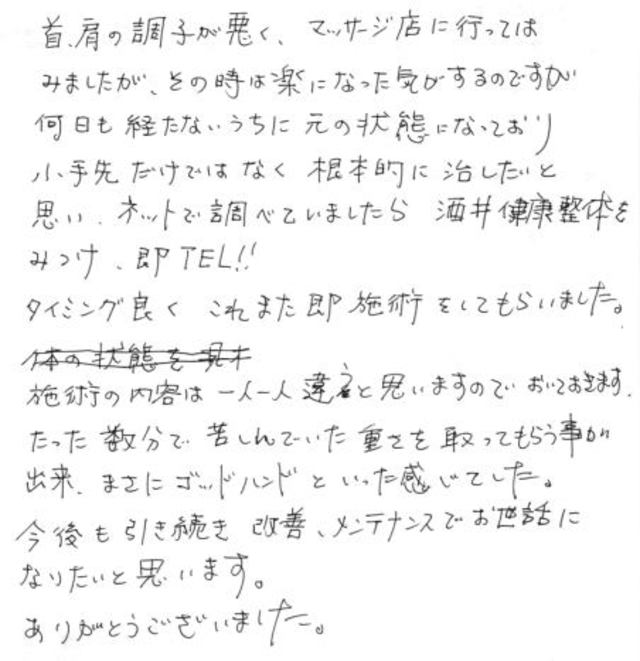 首、肩の調子が悪く、マッサージ店に行っては
みましたが、その時は楽になった気がするのですが
何日も経たないうちに元の状態になっており
小手先だけではなく根本的に治したいと
思い、ネットで調べていましたら 酒井健康整体を
みつけ、即TEL!!
タイミング良く これまた即施術をしてもらいました。
体の状態を見れ
施術の内容は一人一人違うと思いますのでおいておきます。
たった数分で苦しんでいた重さを取ってもらう事が
出来、まさにゴッドハンドといった感じでした。
今後も引き続き改善、メンテナンスでお世話に
なりたいと思います。
ありがとうございました。